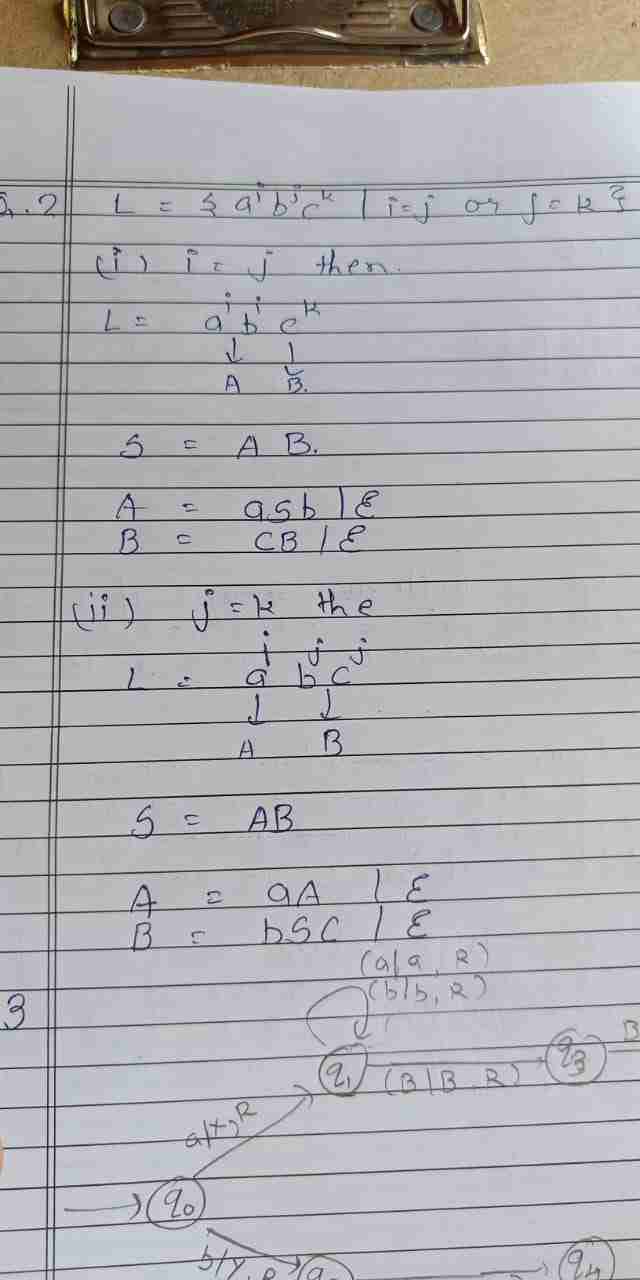 Q.2 L = { aⁱ bʲ cᵏ | i=j or j=k }
(i) i = j then.
L = aⁱ bⁱ cᵏ
↓ ↓
A B.
S = A B.
A = aSb | ε
B = cB | ε
(ii) j = k the
L = aʲ bʲ cʲ
↓ ↓
A B
S = AB
A = aA | ε
B = bSC | ε
3
(a/a, R)
(b/b, R)
q₁ (B/B, R) q₃ B
a/x, R
→ q₀
b/y, R q₄